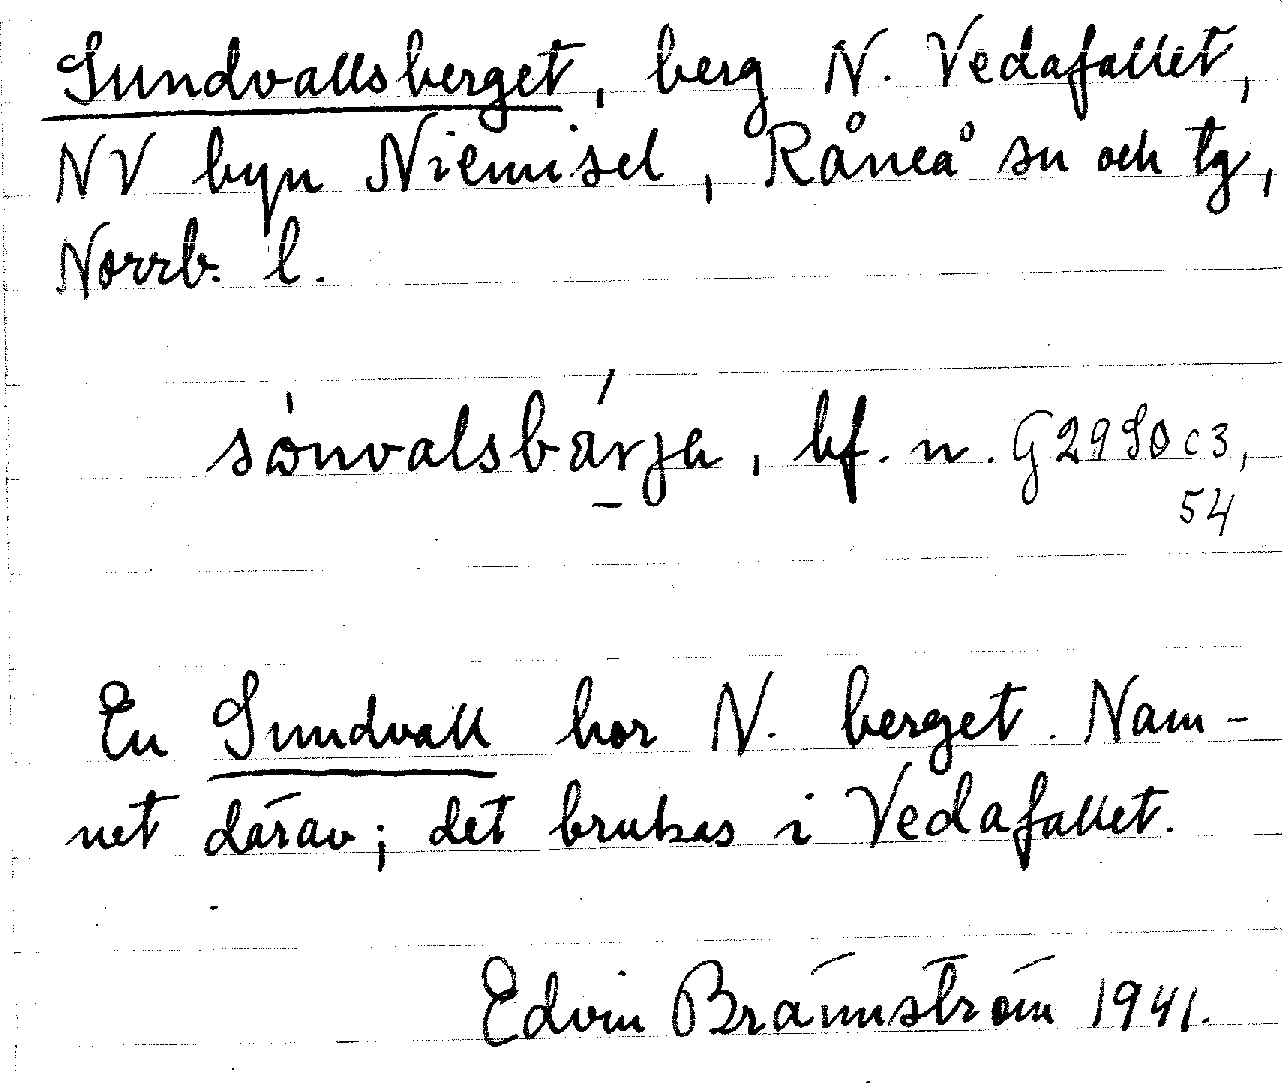 Sundvallsberget, berg N. Vedafallet,
NV byn Niemisel, Råneå sn och tg,
Norrb. l.
sönvalsbärja, bf. n. G2980c3,
54
En Sundvall bor N. berget. Nam-
net därav; det brukas i Vedafallet.
Edvin Brännström 1941.